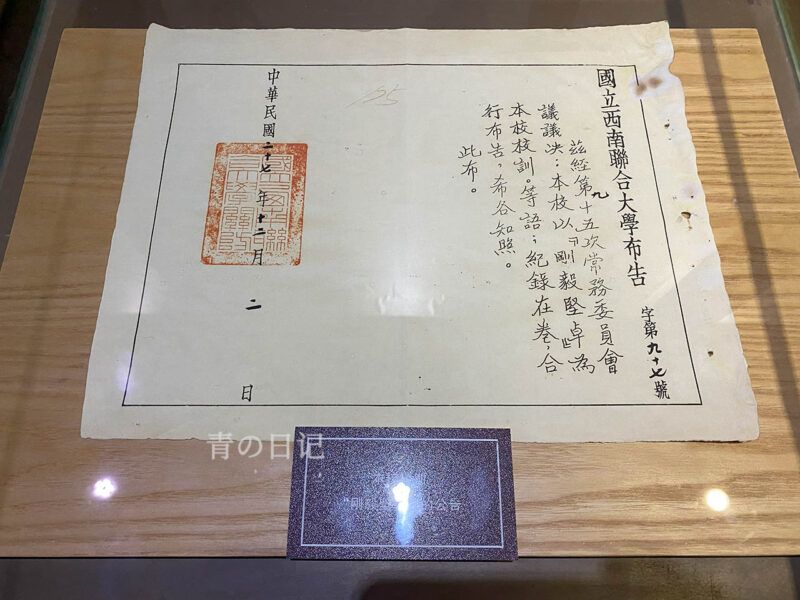 國立西南聯合大學布告 字第九十七號
茲經第九十五次常務委員會
議議決：本校以『剛毅堅卓』為
本校校訓。等語；紀錄在卷，合
行布告，希各知照。
此布。
中華民國二十七年十二月二日
青の日记
公告